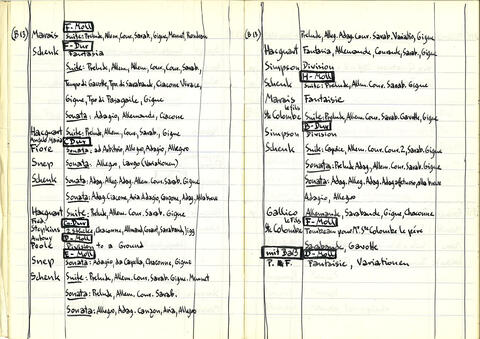 F-Moll
(B13) Marais Suite: Prelude, Allem, Cour, Sarab, Gigue, Menuet, Rondeau
F-Dur
Schenk Fantasia
Suite: Prelude, Allem, Allem, Cour, Cour, Sarab,
Tempo di Gavotte, Tpo di Sarabande, Ciacone Vivace,
Gigue, Tpo di Passagaile, Gigue
Sonata: Adagio, Allemande, Ciacone
Hacquart Suite: Prelude, Allem, Cour, Sarab, Gigue
C-Dur
Fiore Sonata: ad Arbitrio, Allegro, Adagio, Allegro
Snep Sonata: Allegro, Largo (Variationen)
Schenk Sonata: Adag. Alleg. Adag. Allem. Cour. Sarab. Gigue
Sonata: Adag. Ciacone, Aria Adagio, Canzona, Adag.
Hacquart Suite: Prelude, Allem. Cour. Sarab. Gigue
Stepkins Chaconne, Almand, Corant, Saraband, Jigg
D-Moll
Poole Division to a Ground
E-Moll
Snep Sonata: Adagio, da Capella, Chaconne, Gigue
Schenk Suite: Prelude, Allem. Cour. Sarab. Gigue. Menuet
Sonata: Prelude, Allem. Cour. Sarab.
Sonata: Allegro, Adag. Canzon, Aria, Allegro
(B13) Prelude, Alleg. Adag. Cour. Sarab. Variatio, Gigue
Hacquart Fantasia, Allemande, Courande, Sarab, Gigue
Simpson Division
H-Moll
Schenk Suite: Prelude, Allem. Cour. Sarab. Gigue
Marais Fantaisie
le fils
Ste Colombe Suite: Prelude, Allem. Cour. Sarab. Gavotte, Gigue
B-Dur
Simpson Division
Schenk Suite: Caprice, Allem. Cour. Cour. 2, Sarab. Gigue
Sonata: Prelude Adag, Allem. Cour. Sarab. Gigue
Sonata: Adag. Alleg. Adag.
Adagio, Allegro
Gallico Allemande, Sarabande, Gigue, Chaconne
le Fils F-Moll
Ste Colombe Tombeau pour Mr. Ste Colombe le père
Sarabande, Gavotte
mit Ba/3 D-Moll
P. F. Fantaisie, Variationen